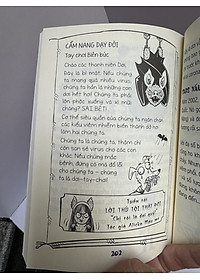 CẨM NANG DẠY ĐỜI
Tay chơi Biên bức
Chào các thanh niên Dơi.
Đây là bí mật: Nếu chúng
ta mang quá nhiều virus,
chúng ta hẳn là những con
dơi hết hơi! Chúng ta phải
lờn phốc xuống vì xì mũi
chăng? SAI BÉT!
Cơ thể siêu quần của chúng ta ngăn chặn
các kiểu viêm nhiễm biến thành đồ hờ
làm hại chúng ta.
Chúng ta là chúng ta, thậm chí
còn san sẻ virus cho các con
khác. Nếu chúng mắc
bệnh, đừng có mà đổ lỗi
cho chúng ta – chúng
ta là dơi-tay-chơi!
Tuần tới
LỜI THÚ TỘI THẬT ĐỜI
"Chị tôi là dơi quỷ"
Tác giả
202